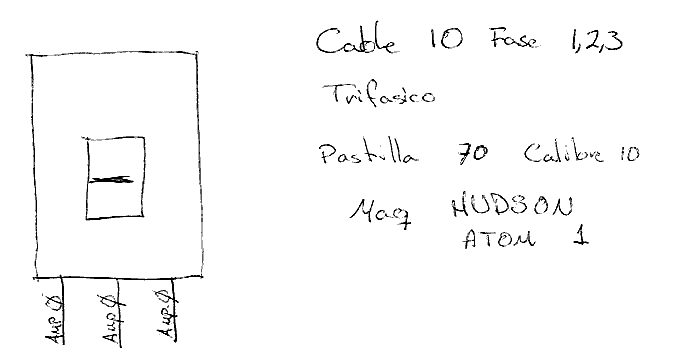 Cable 10 Fase 1,2,3
Trifasico
Pastilla 70 Calibre 10
Maq HUDSON
ATOM 1
Amp Ø
Amp Ø
Amp Ø